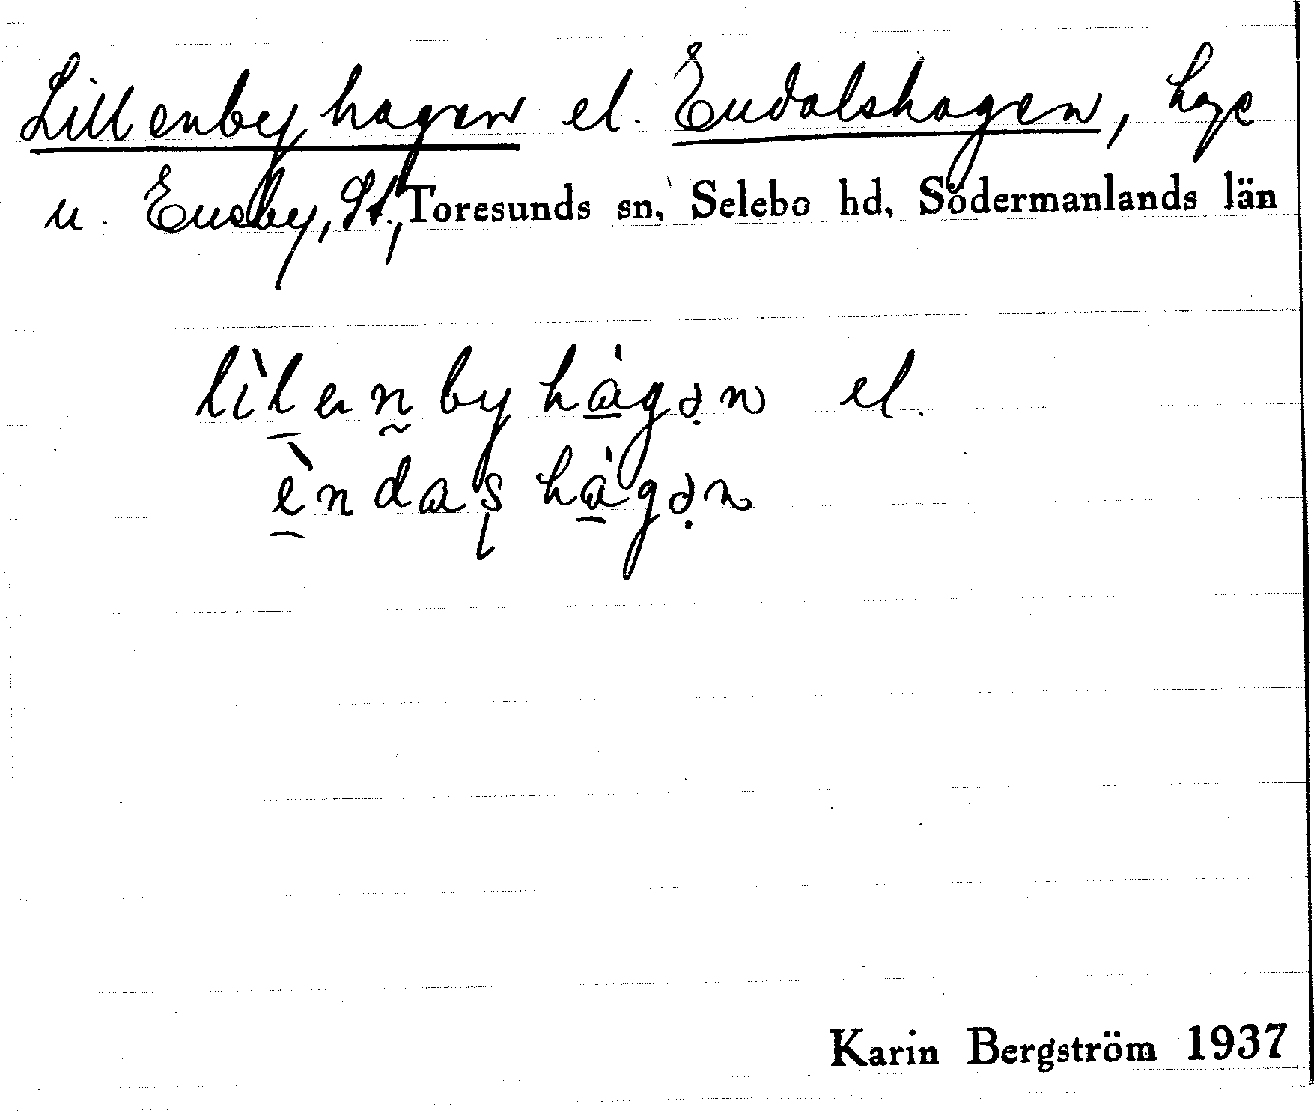 Lillenbyhagen el. Endalshagen, hage
u. Eneby, St., Toresunds sn, Selebo hd, Södermanlands län
lìlenbyhàgən el.
èndaʂhàgən
Karin Bergström 1937